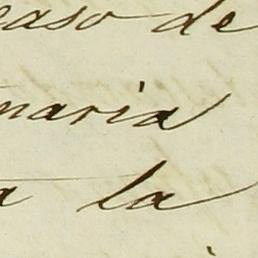 caso de
naria
a la